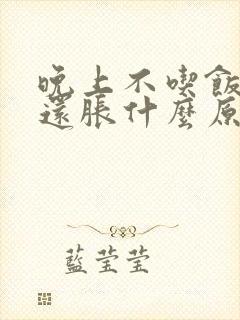 晚上不喫飯
還脹什麼原
藍瑩瑩